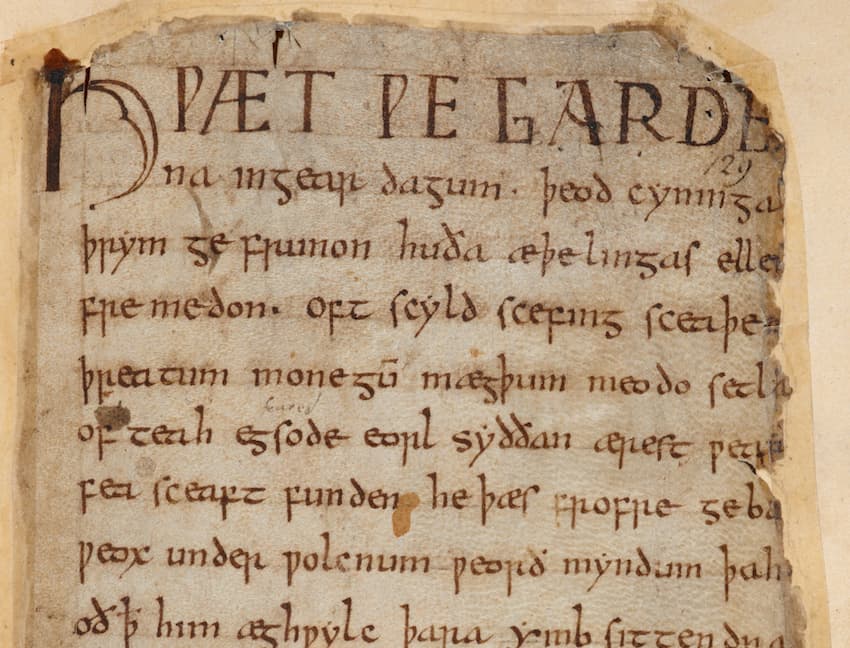 HǷÆT ǷE GARDE
na in gear dagum. þeod cyninga
þrym ge frunon huða æþelingas elle
fre medon. oft scyld scefing sceaþe
þreatum monegū mægþum meodo setla
of teah egsode eorl syððan ærest ƿear
fea sceaft funden he þæs frofre geba
ƿeox under ƿolcnum ƿeorð myndum þah
oð þ̅ him æghƿylc þara ymb sittendra
129